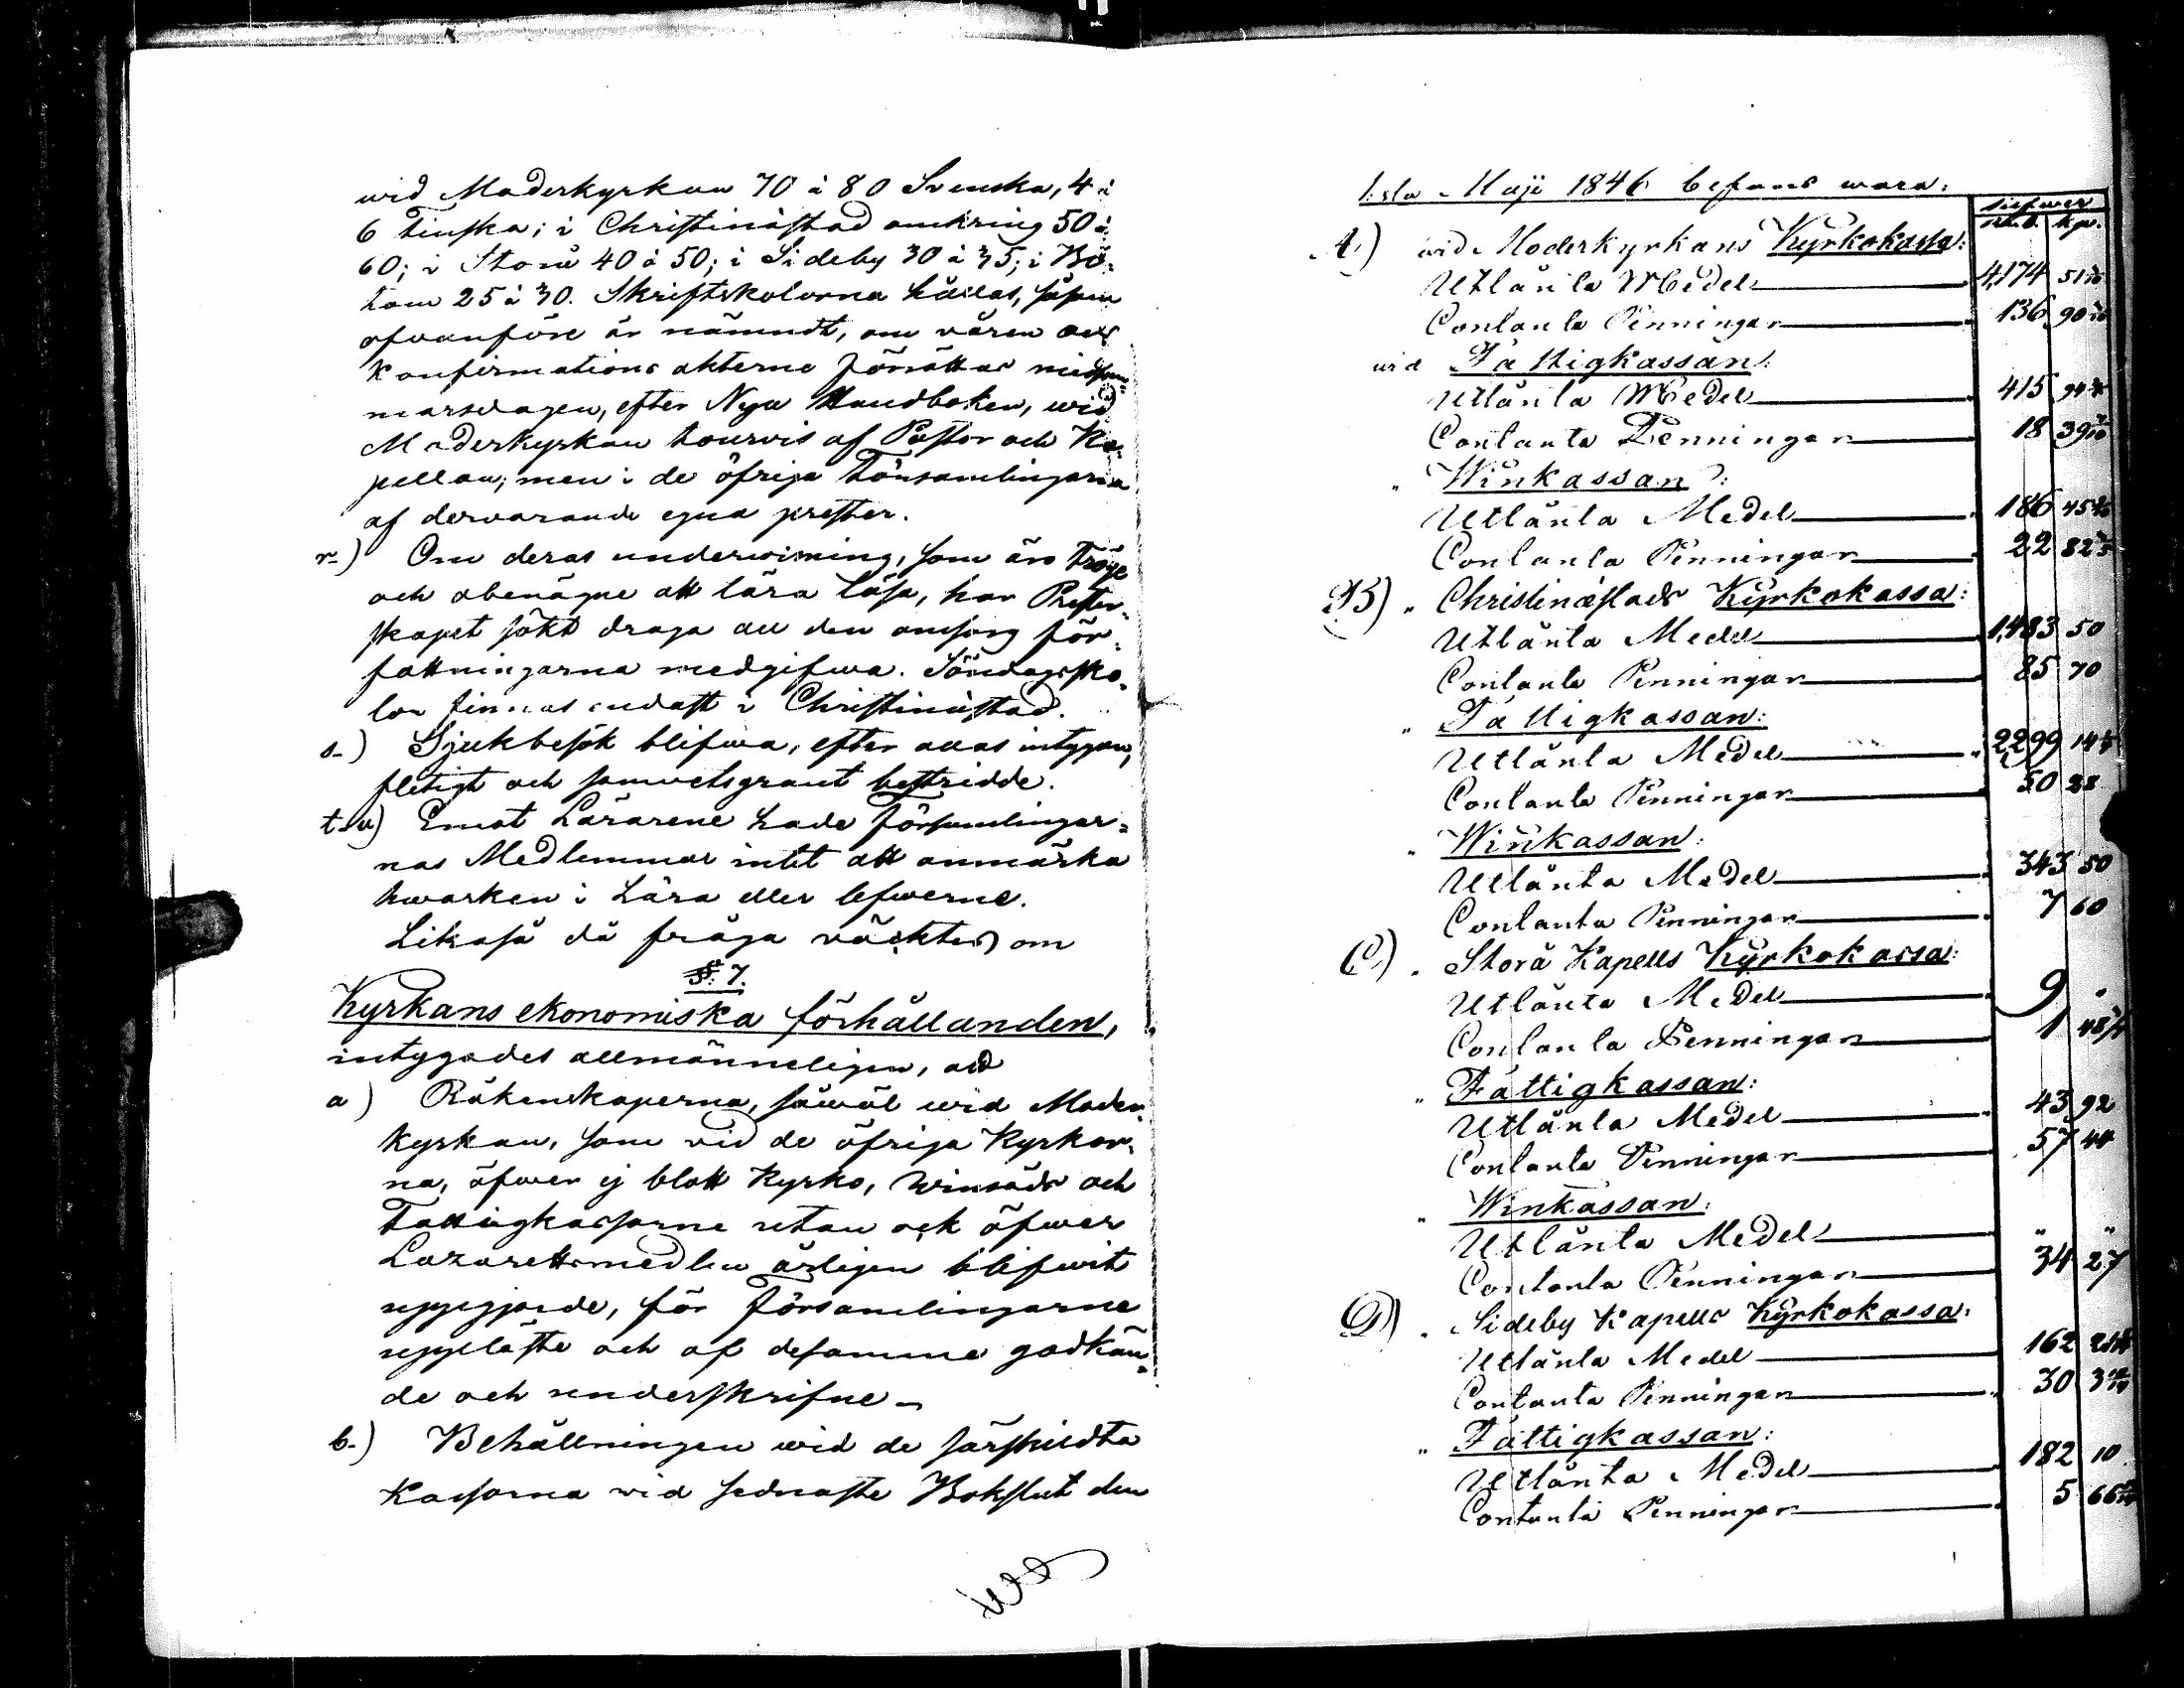 wid Moderkyrkan 70 à 80 Svenska, 4 à
6 Finska; i Christinæstad omkring 50 à
60; i Storå 40 à 50; i Sideby 30 à 35; i Bö-
tom 25 à 30. Skriftskolorna hållas, såsom
ofvanföre är nämndt, om våren och
Konfirmations akterne förrättas midsom-
marsdagen, efter Nya Handboken, wid
Moderkyrkan tourvis af Pastor och Ka-
pellan, men i de öfriga Församlingarna
af dervarande egna prester.
r.) Om deras underwisning, som äro tröge
och obenägne att lära läsa, har Prester-
skapet sökt draga all den omsorg för-
fattningarna medgifwa. Söndagssko-
lor finnas endast i Christinæstad.
s.) Sjukbesök blifwa, efter allas intygan,
flitigt och samvetsgrant bestridde.
t-u) Emot Lärarene hade Församlingar-
nas Medlemmar intet att anmärka
hwarken i Lära eller lefwerne.
Likaså då fråga väcktes om
§. 7.
Kyrkans ekonomiska förhållanden,
intygades allmänneligen, att
a) Räkenskaperna, såwäl wid Moder-
kyrkan, som vid de öfriga Kyrkor-
na, öfwer ej blott Kyrko, Winsäds och
Fattigkassorne utan ock öfwer
Lazarettsmedlen årligen blifwit
uppgjorde, för Församlingarne
uppläste och af desamma godkän-
de och underskrifne.
b.) Behållningen wid de särskildta
Kassorna vid sednaste Bokslut den
1:sta Maji 1846 befans wara:
silfwer
rub. kop.
A) wid Moderkyrkans Kyrkokassa:
Utlånta Medel 4,174 51
Contanta Penningar 136 90
wid Fattigkassan:
Utlånta Medel 415 94
Contanta Penningar 18 39
" Winkassan:
Utlånta Medel 186 45
Contanta Penningar 22 82
B) " Christinæstads Kyrkokassa:
Utlånta Medel 1,483 50
Contanta Penningar 85 70
" Fattigkassan:
Utlånta Medel 2,299 14
Contanta Penningar 50 28
" Winkassan:
Utlånta Medel 343 50
Contanta Penningar 7 60
C) " Storå Kapells Kyrkokassa:
Utlånta Medel 9 "
Contanta Penningar 1 48
" Fattigkassan:
Utlånta Medel 43 92
Contanta Penningar 57 44
" Winkassan:
Utlånta Medel " "
Contanta Penningar 34 27
D) " Sideby Kapells Kyrkokassa:
Utlånta Medel 162
Contanta Penningar 30 3
" Fattigkassan:
Utlånta Medel 182 10
Contanta Penningar 5 66